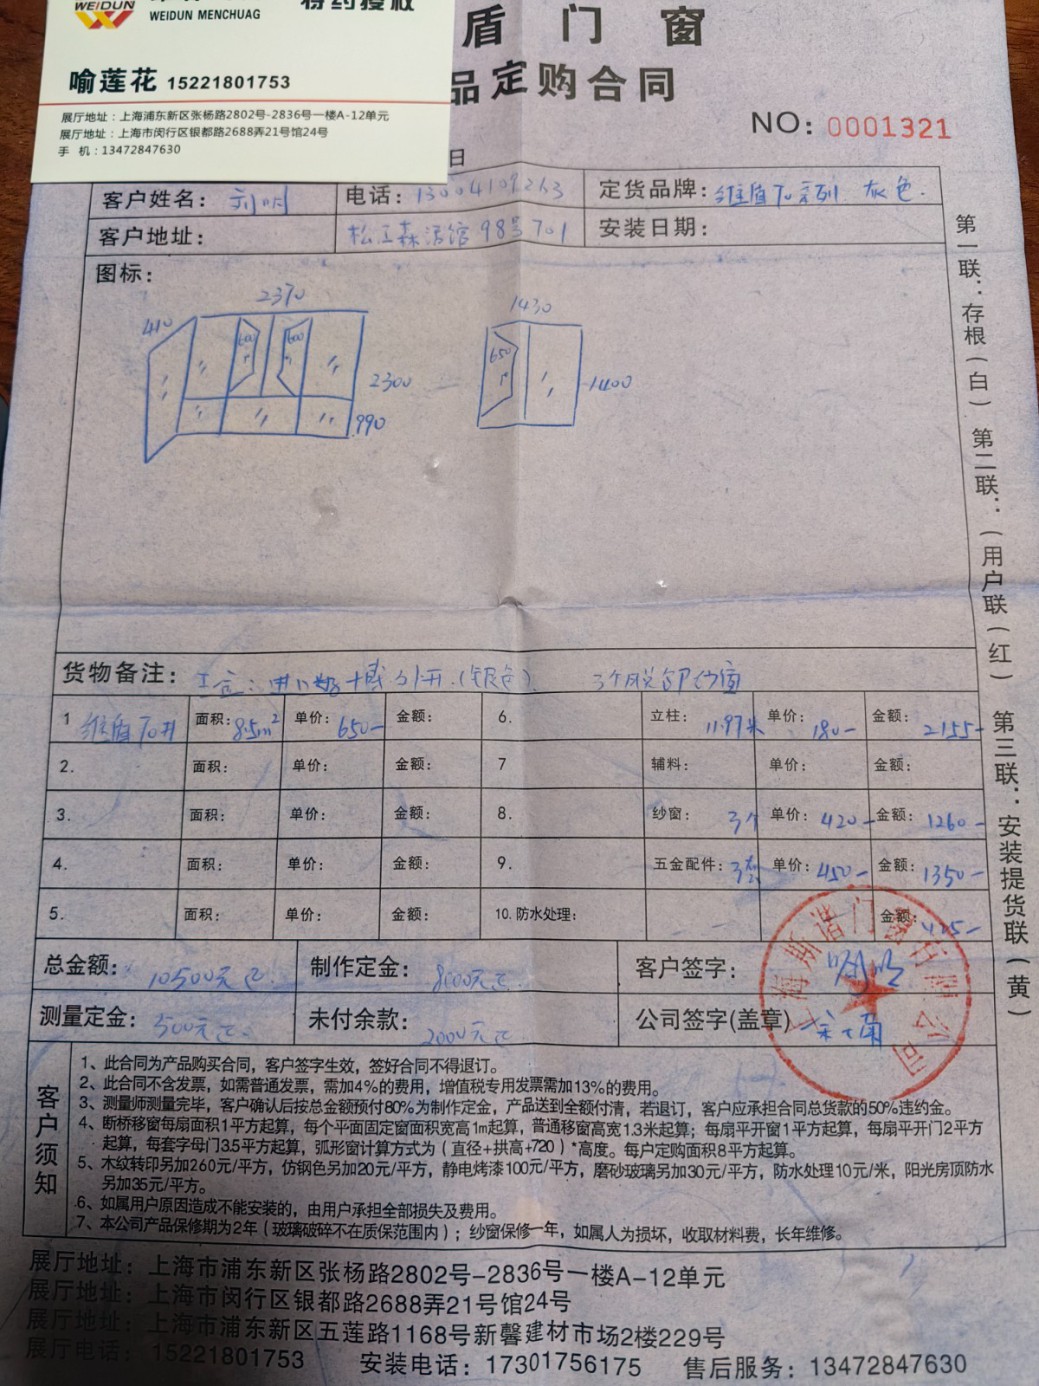 WEIDUN
WEIDUN MENCHUAG
特约授权
喻莲花 15221801753
展厅地址：上海浦东新区张杨路2802号-2836号一楼A-12单元
展厅地址：上海市闵行区银都路2688弄21号馆24号
手 机：13472847630
盾 门 窗
品定购合同
NO：0001321
日
客户姓名：
电话：
定货品牌：维盾70系列 灰色.
客户地址：
98号701
安装日期：
图标：
2370
410
600
600
2300
990
1430
650
1400
货物备注：
(银色)
1 维盾70 面积：8.5m² 单价：650- 金额：
6. 立柱：11.97米 单价：180- 金额：2155-
2. 面积： 单价： 金额：
7 辅料： 单价： 金额：
3. 面积： 单价： 金额：
8. 纱窗：3个 单价：420- 金额：1260-
4. 面积： 单价： 金额：
9. 五金配件：3套 单价：450- 金额：1350-
5. 面积： 单价： 金额：
10.防水处理： 金额：
总金额：10500元
制作定金：8000元
客户签字：
测量定金：500元
未付余款：2000元
公司签字(盖章)
客户须知
1、此合同为产品购买合同，客户签字生效，签好合同不得退订。
2、此合同不含发票，如需普通发票，需加4%的费用，增值税专用发票需加13%的费用。
3、测量师测量完毕，客户确认后按总金额预付80%为制作定金，产品送到全额付清，若退订，客户应承担合同总货款的50%违约金。
4、断桥移窗每扇面积1平方起算，每个平面固定窗面积宽高1m起算，普通移窗高宽1.3米起算；每扇平开窗1平方起算，每扇平开门2平方
起算，每套字母门3.5平方起算，弧形窗计算方式为（直径+拱高+720）*高度。每户定购面积8平方起算。
5、木纹转印另加260元/平方，仿钢色另加20元/平方，静电烤漆100元/平方，磨砂玻璃另加30元/平方，防水处理10元/米，阳光房顶防水
另加35元/平方。
6、如属用户原因造成不能安装的，由用户承担全部损失及费用。
7、本公司产品保修期为2年（玻璃破碎不在质保范围内）；纱窗保修一年，如属人为损坏，收取材料费，长年维修。
第一联：存根（白） 第二联：（用户联（红） 第三联：安装提货联（黄）
展厅地址：上海市浦东新区张杨路2802号-2836号一楼A-12单元
展厅地址：上海市闵行区银都路2688弄21号馆24号
展厅地址：上海市浦东新区五莲路1168号新馨建材市场2楼229号
展厅电话：15221801753 安装电话：17301756175 售后服务：13472847630